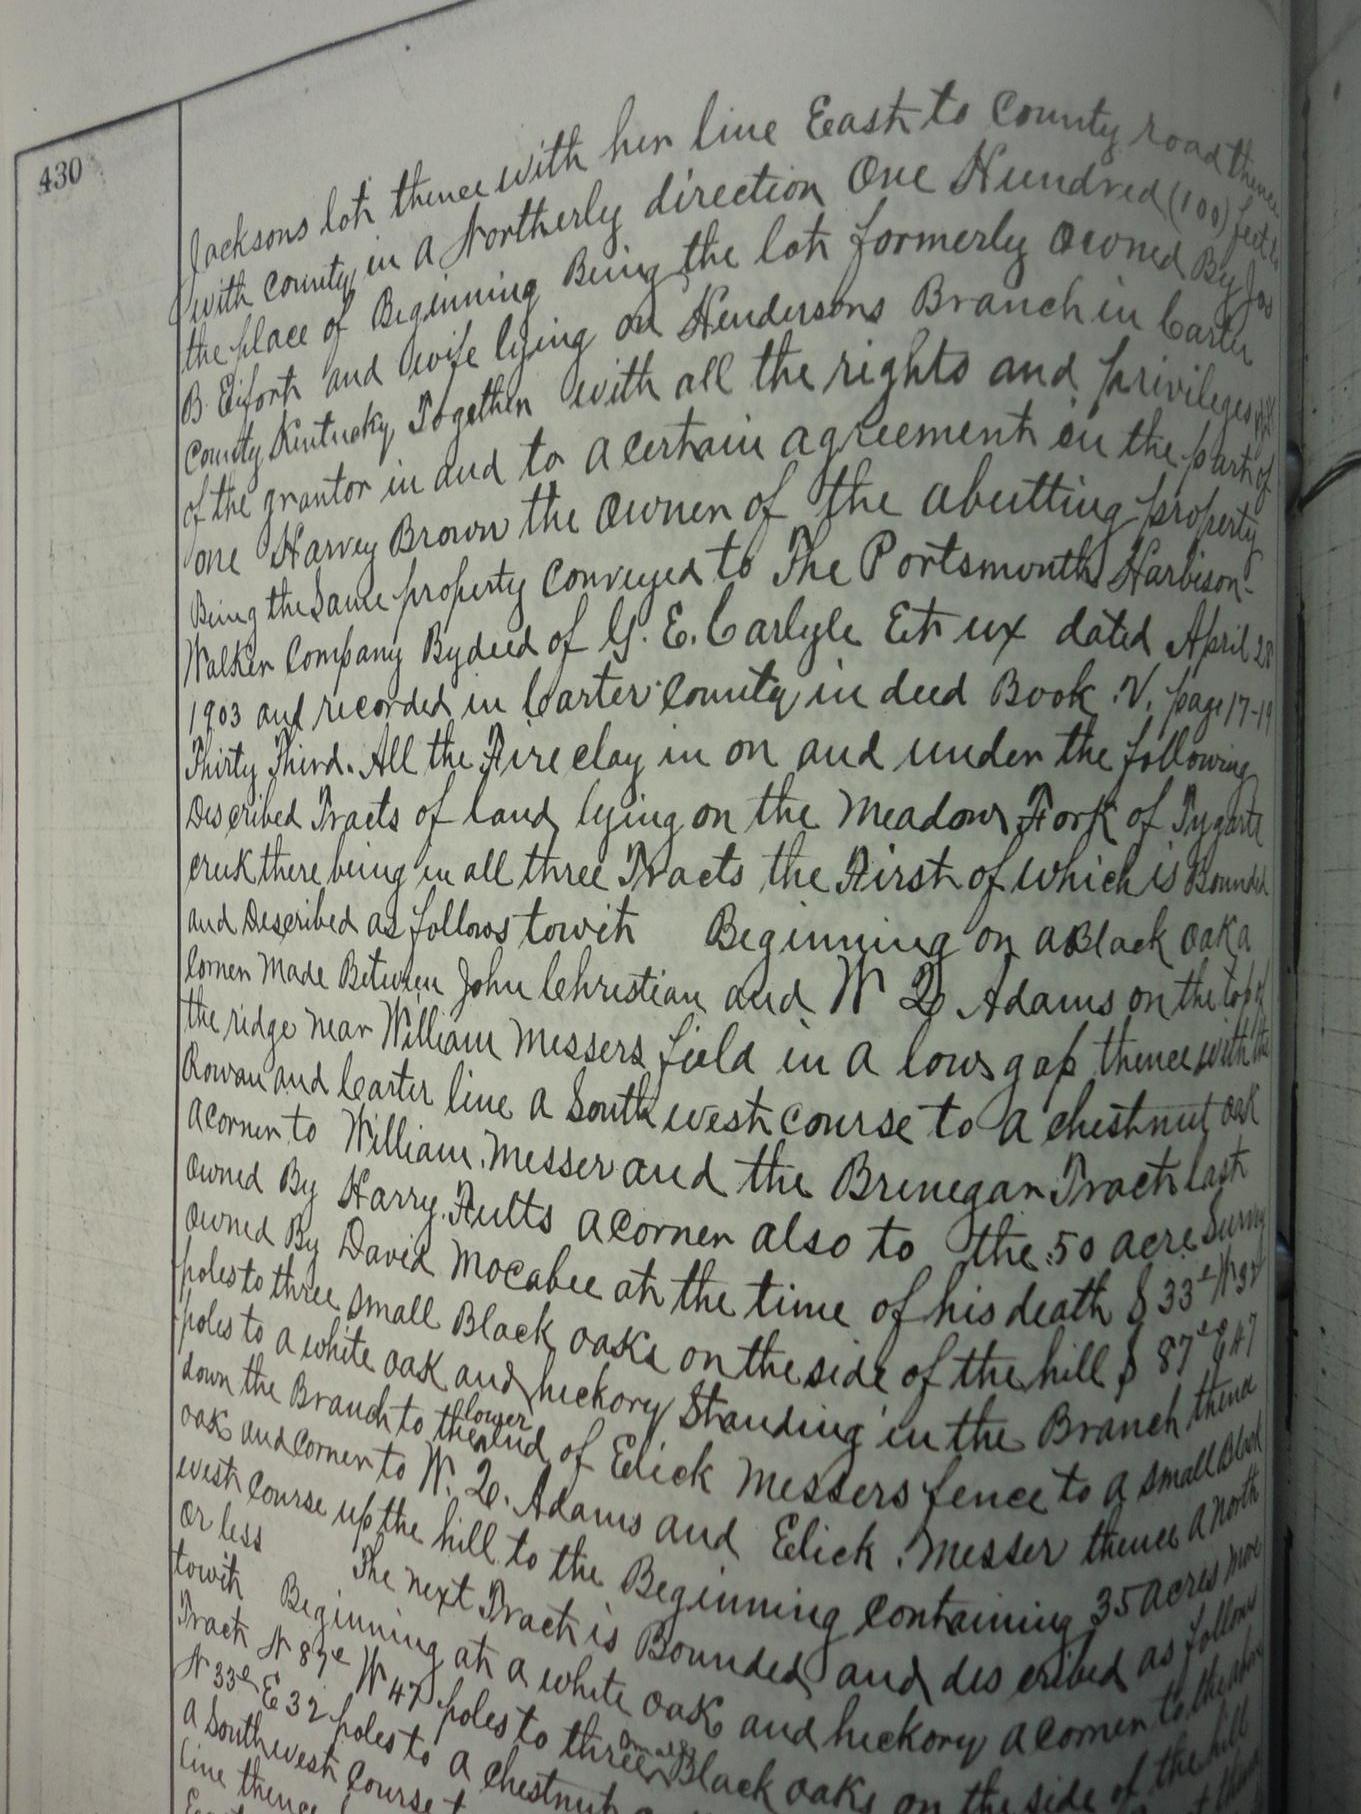 430
Jacksons lot thence with her line East to County road thence
with County in a Northerly direction One Hundred (100) feet to
the place of Beginning Being the lot formerly Owned By Jas
B. Eifort and wife lying on Hendersons Branch in Carter
County Kentucky Together with all the rights and privileges
of the grantor in and to a certain agreement on the part of
one Harvey Brown the Owner of the abutting property
Being the Same property Conveyed to The Portsmouth Harbison-
Walker Company By deed of G. E. Carlyle Et ux dated April 28
1903 and recorded in Carter County in deed Book V. page 17-19
Thirty Third. All the Fire clay in on and under the following
Described Tracts of land lying on the Meadow Fork of Tygarts
creek there being in all three Tracts the First of which is Bounded
and Described as follows towit Beginning on a Black Oak a
Corner Made Between John Christian and W Q Adams on the top of
the ridge near William Messers field in a low gap thence with the
Rowan and Carter line a South west course to a chestnut oak
a corner to William Messer and the Brinegar Tract last
owned By Harry Fults a corner also to the 50 acre Survey
owned By David Mocabee at the time of his death S 33e W 32
poles to three small Black oaks on the side of the hill S 87e E 47
poles to a white oak and hickory Standing in the Branch thence
down the Branch to the lower end of Elick Messers fence to a small Black
oak and Corner to W. Q. Adams and Elick Messer thence a North
west Course up the hill to the Beginning Containing 35 acres more
or less The next Tract is Bounded and described as follows
towit Beginning at a white oak and hickory a corner to the above
Tract N 87e W 47 poles to three small Black oaks on the side of the hill
N 33e E 32 poles to a chestnut
a Southwest Course
line thence